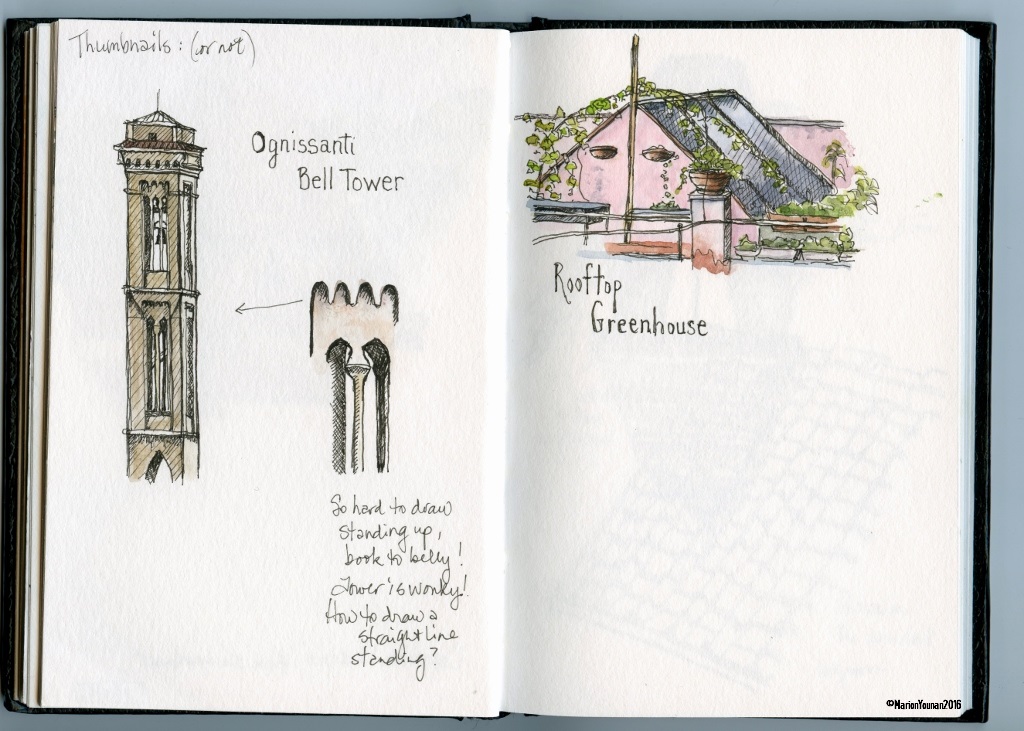 Thumbnails: (or not)
Ognissanti
Bell Tower
So hard to draw
standing up,
book to belly!
Tower is wonky!
How to draw a
straight line
standing?
Rooftop
Greenhouse
©MarionYounan2016